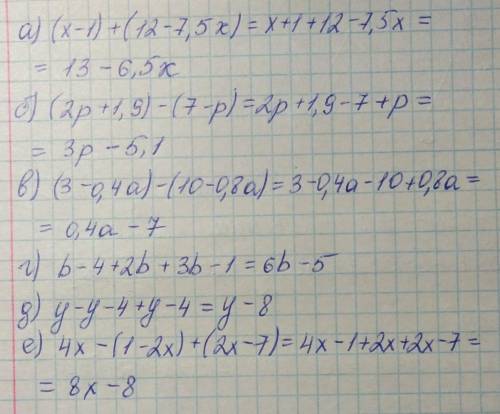 а) (x-1)+(12-7,5x)=x+1+12-7,5x=
= 13-6,5x
б) (2p+1,9)-(7-p)=2p+1,9-7+p=
= 3p-5,1
в) (3-0,4a)-(10-0,8a)=3-0,4a-10+0,8a=
= 0,4a-7
г) b-4+2b+3b-1=6b-5
д) y-y-4+y-4=y-8
е) 4x-(1-2x)+(2x-7)=4x-1+2x+2x-7=
= 8x-8